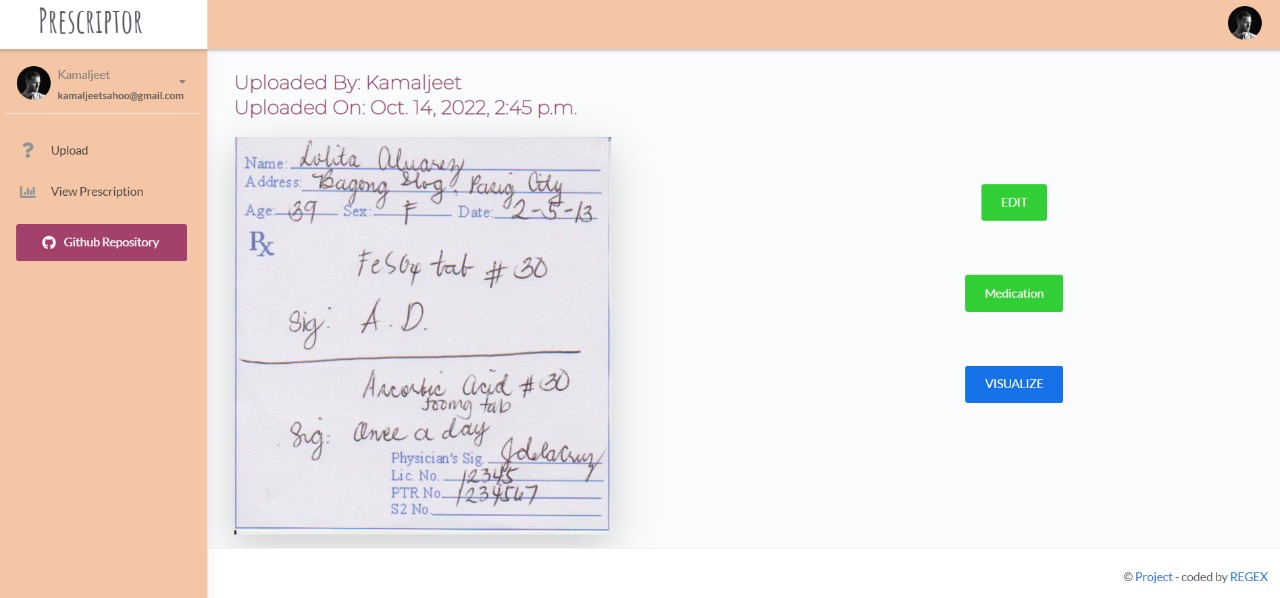 PRESCRIPTOR
Kamaljeet
kamaljeetsahoo@gmail.com
Upload
View Prescription
Github Repository
Uploaded By: Kamaljeet
Uploaded On: Oct. 14, 2022, 2:45 p.m.
Name: Lolita Alvarez
Address: Bagong Ilog, Pasig City
Age: 39 Sex: F Date: 2-5-13
Rx
FeSO4 tab # 30
Sig: A.D.
Ascorbic Acid # 30
500mg tab
Sig: Once a day
Physician's Sig. Jdela Cruz
Lic. No. 12345
PTR No. 1234567
S2 No.
EDIT
Medication
VISUALIZE
© Project - coded by REGEX